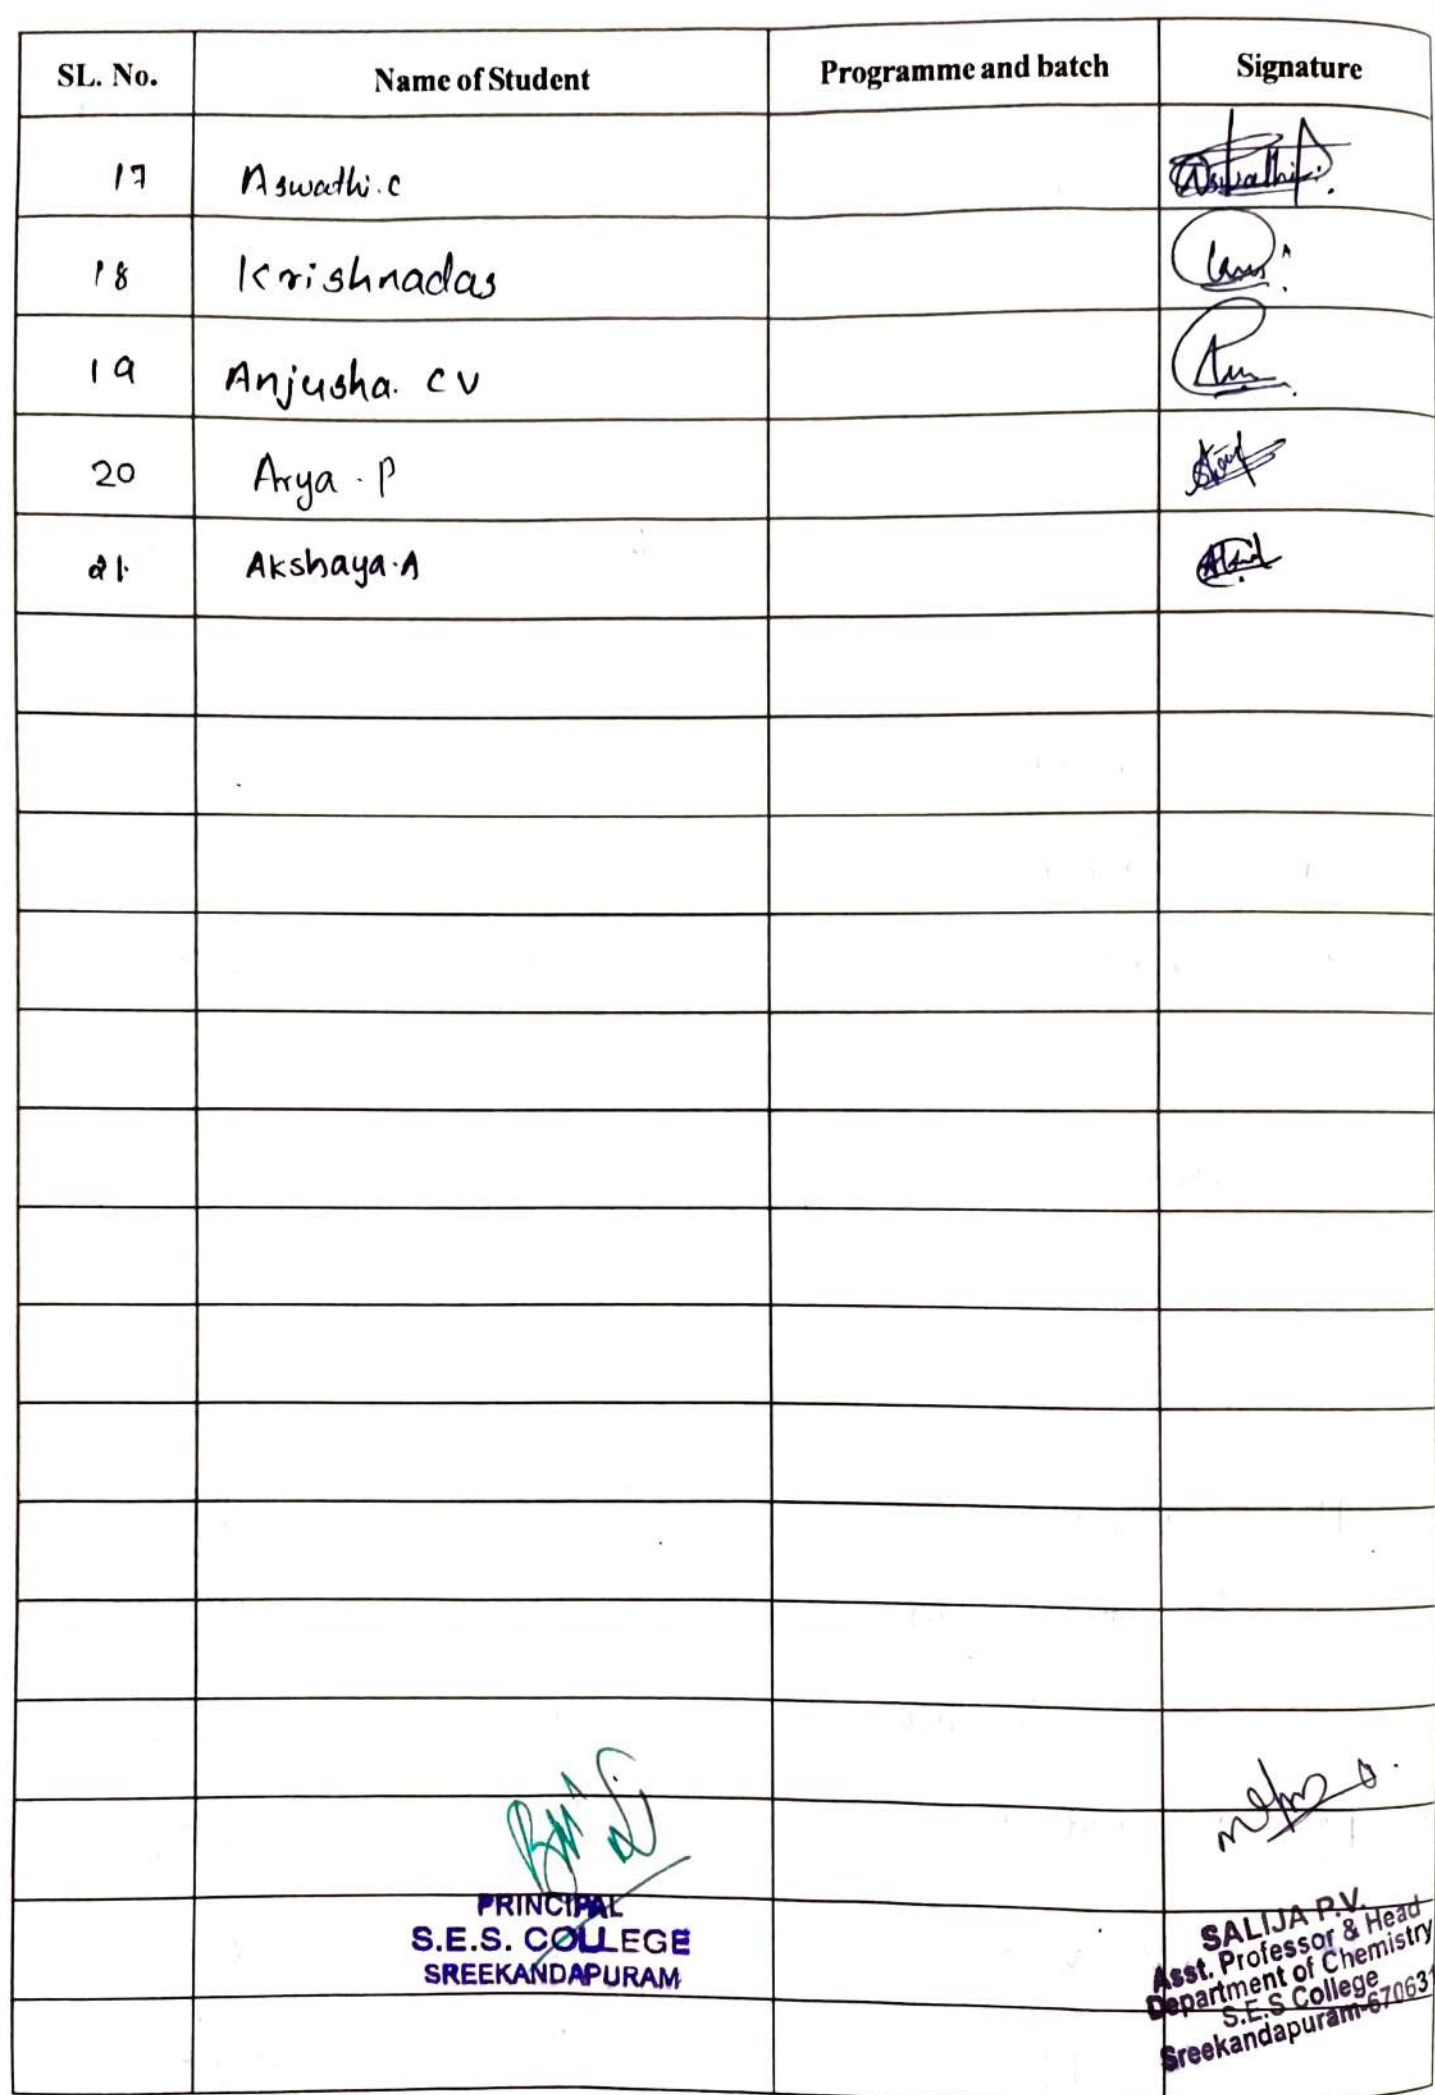 SL. No. Name of Student Programme and batch Signature
17 Aswathi.C
18 Krishnadas
19 Anjusha. CV
20 Arya.P
21. Akshaya.A
PRINCIPAL
S.E.S. COLLEGE
SREEKANDAPURAM
SALIJA P.V.
Asst. Professor & Head
Department of Chemistry
S.E.S College
Sreekandapuram-670631